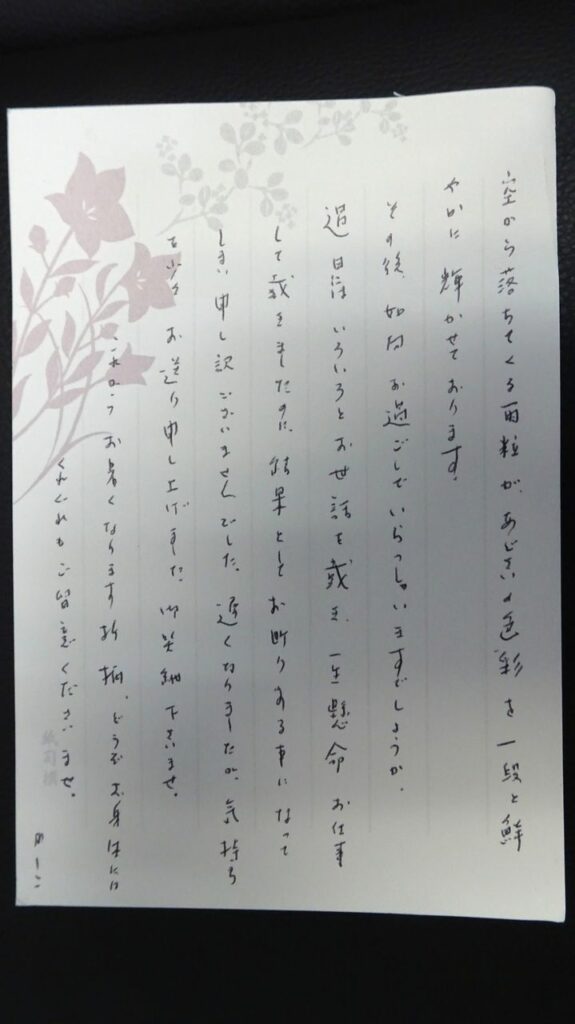 空から落ちてくる雨粒が、あじさいの色彩を一段と鮮
やかに輝かせております。
その後、如何お過ごしでいらっしゃいますでしょうか。
過日は いろいろとお世話を戴き、一生懸命お仕事
して戴きましたのに、結果としてお断りする事になって
しまい申し訳ございませんでした。遅くなりましたが、気持ち
お送り申し上げました。御笑納下さいませ。
これからお暑くなります折柄、どうぞお身体には
くれぐれもご留意くださいませ。